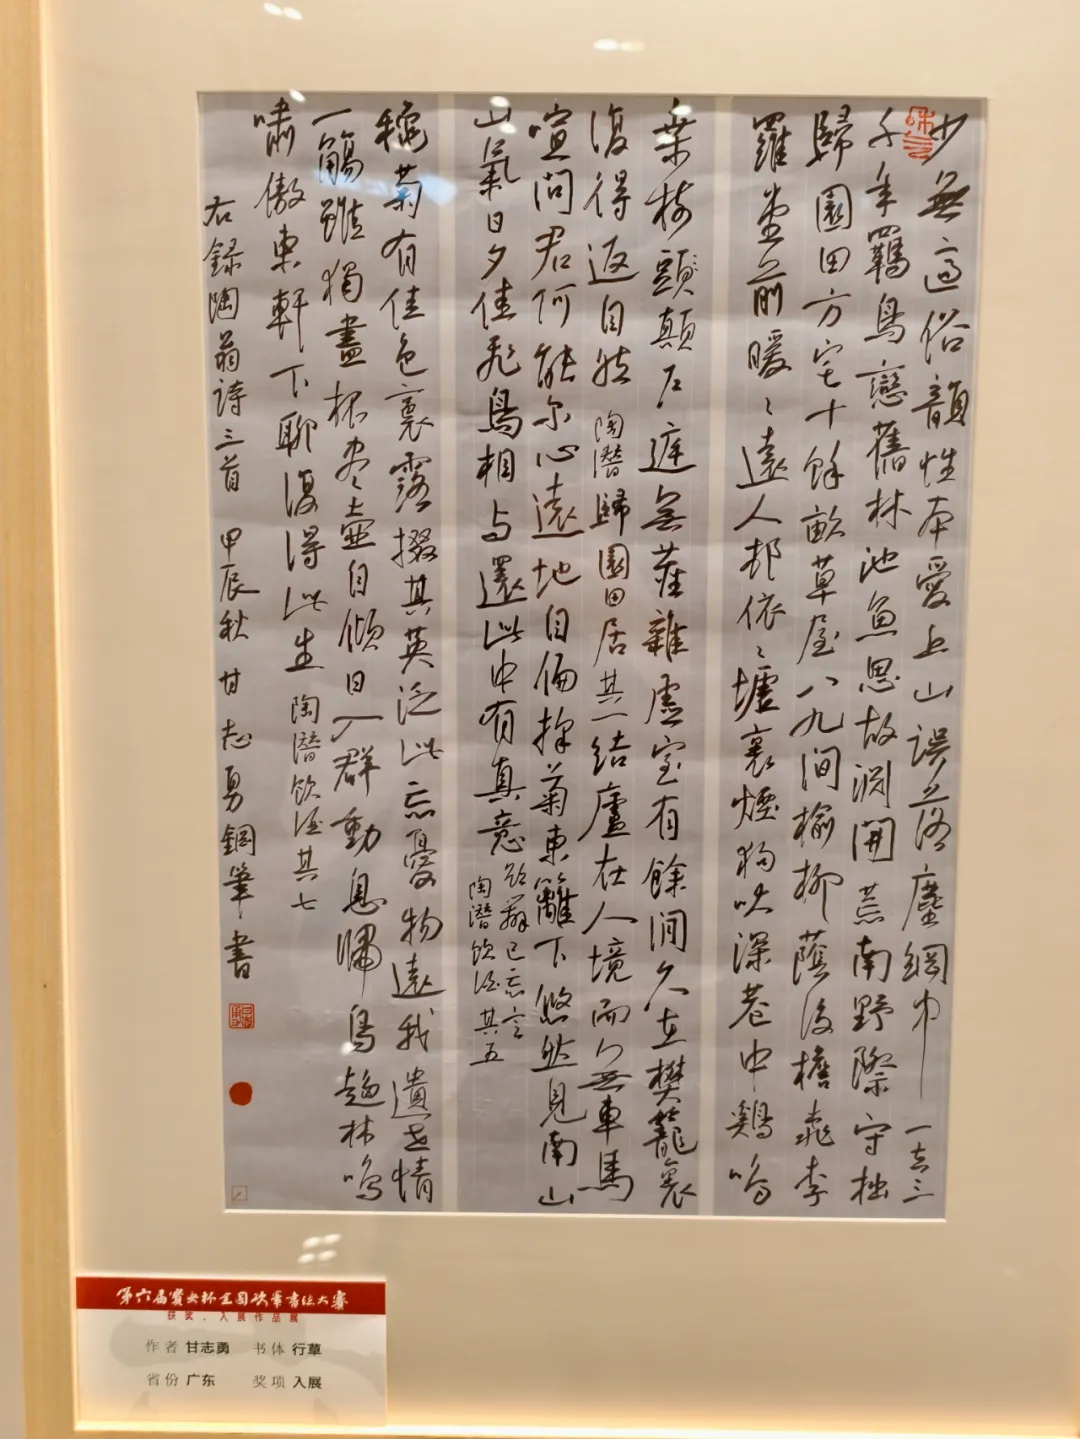 少無適俗韻性本愛丘山誤落塵網中一去三
十年羈鳥戀舊林池魚思故淵開荒南野際守拙
歸園田方宅十餘畝草屋八九間榆柳蔭後檐桃李
羅堂前暖〻遠人邨依〻墟裏煙狗吠深巷中鷄鳴
桑樹頭顛戶庭無塵雜虛室有餘間久在樊籠裏
復得返自然 陶潛歸園田居其一 結廬在人境而無車馬
喧問君何能尔心遠地自偏採菊東籬下悠然見南山
山氣日夕佳飛鳥相与還此中有真意欲辯已忘言
陶潛飲酒其五
穐菊有佳色裛露掇其英泛此忘憂物遠我遺世情
一觴雖獨盡杯尽壺自傾日入群動息歸鳥趨林鳴
嘯傲東軒下聊復得此生 陶潛飲酒其七
右録陶翁詩三首 甲辰秋 甘志勇鋼筆書
第六届杯全国硬笔书法大赛
获奖、入展作品展
作者 甘志勇 书体 行草
省份 广东 奖项 入展